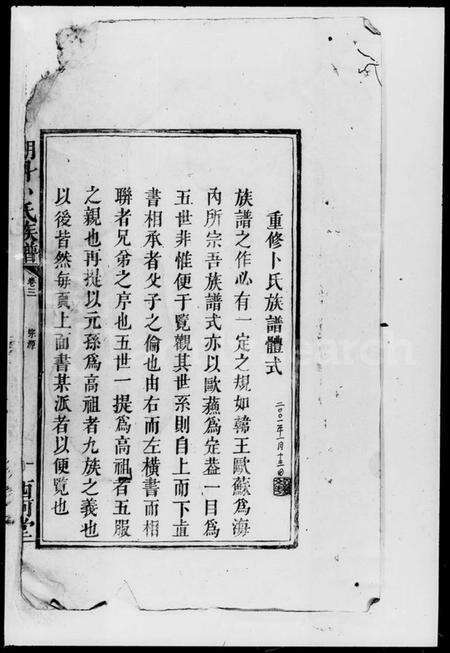 重修卜氏族譜體式
二〇〇一年一月十五日
族譜之作必有一定之規如韓王歐蘇爲海
內所宗吾族譜式亦以歐蘇爲定蓋一目爲
五世非惟便于覽觀其世系則自上而下直
書相承者父子之倫也由右而左橫書而相
聯者兄弟之序也五世一提爲高祖者五服
之親也再提以元孫爲高祖者九族之義也
以後皆然每頁上面書某派者以便覽也
卜氏族譜
卷三
堂